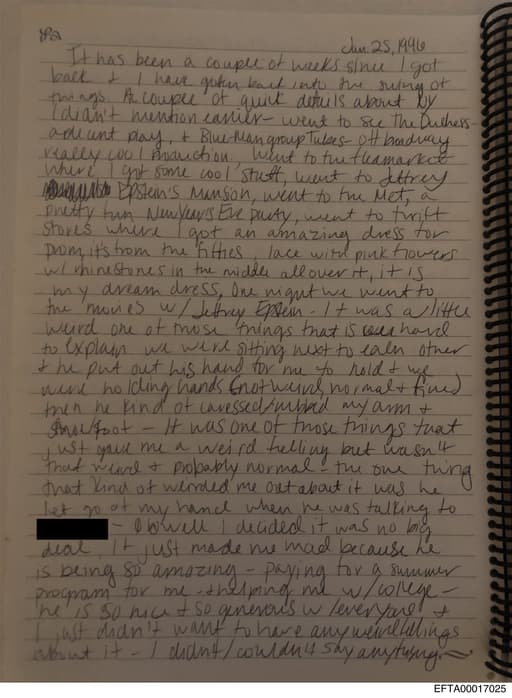 Jan. 25, 1996
It has been a couple of weeks since I got
back & I have gotten back into the swing of
things. A couple of quick details about NY
I didn't mention earlier - went to see The Duchess -
a decent play, & Blue Man group Tubes - off broadway
really cool production, went to the fleamarket
where I got some cool stuff, went to Jeffrey
Epstein's Mansion, went to the Met, a
pretty fun New Year's Eve party, went to thrift
stores where I got an amazing dress for
prom, it's from the fifties, lace with pink flowers
w/ rhinestones in the middle all over it, it is
my dream dress. One night we went to
the movies w/ Jeffrey Epstein - It was a little
weird one of those things that is hard
to explain we were sitting next to each other
& he put out his hand for me to hold & we
were holding hands (not weird, normal & fine)
then he kind of caressed/rubbed my arm &
foot - It was one of those things that
just gave me a weird feeling but wasn't
that weird & probably normal - the one thing
that kind of weirded me out about it was he
let go of my hand when he was talking to
- Oh well I decided it was no big
deal. It just made me mad because he
is being so amazing - paying for a summer
program for me & helping me w/ college -
he is so nice & so generous w/ everyone &
I just didn't want to have any weird feelings
about it - I didn't/couldn't say anything.
EFTA00017025